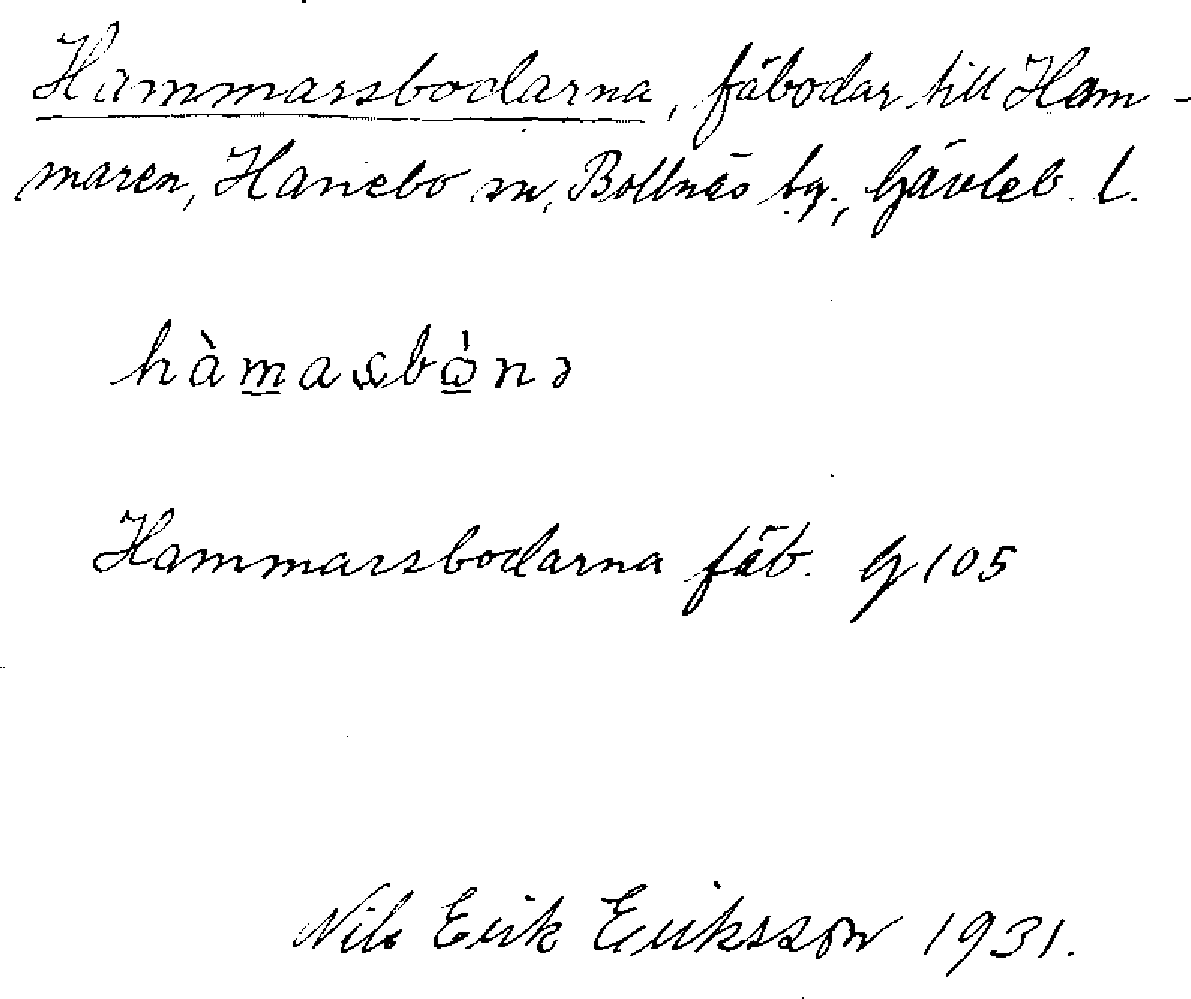 Hammarsbodarna, fäbodar till Ham-
maren, Hanebo sn, Bollnäs tg., Gävleb. l.
hàmasbὼnə
Hammarsbodarna fäb. G 105
Nils Erik Eriksson 1931.